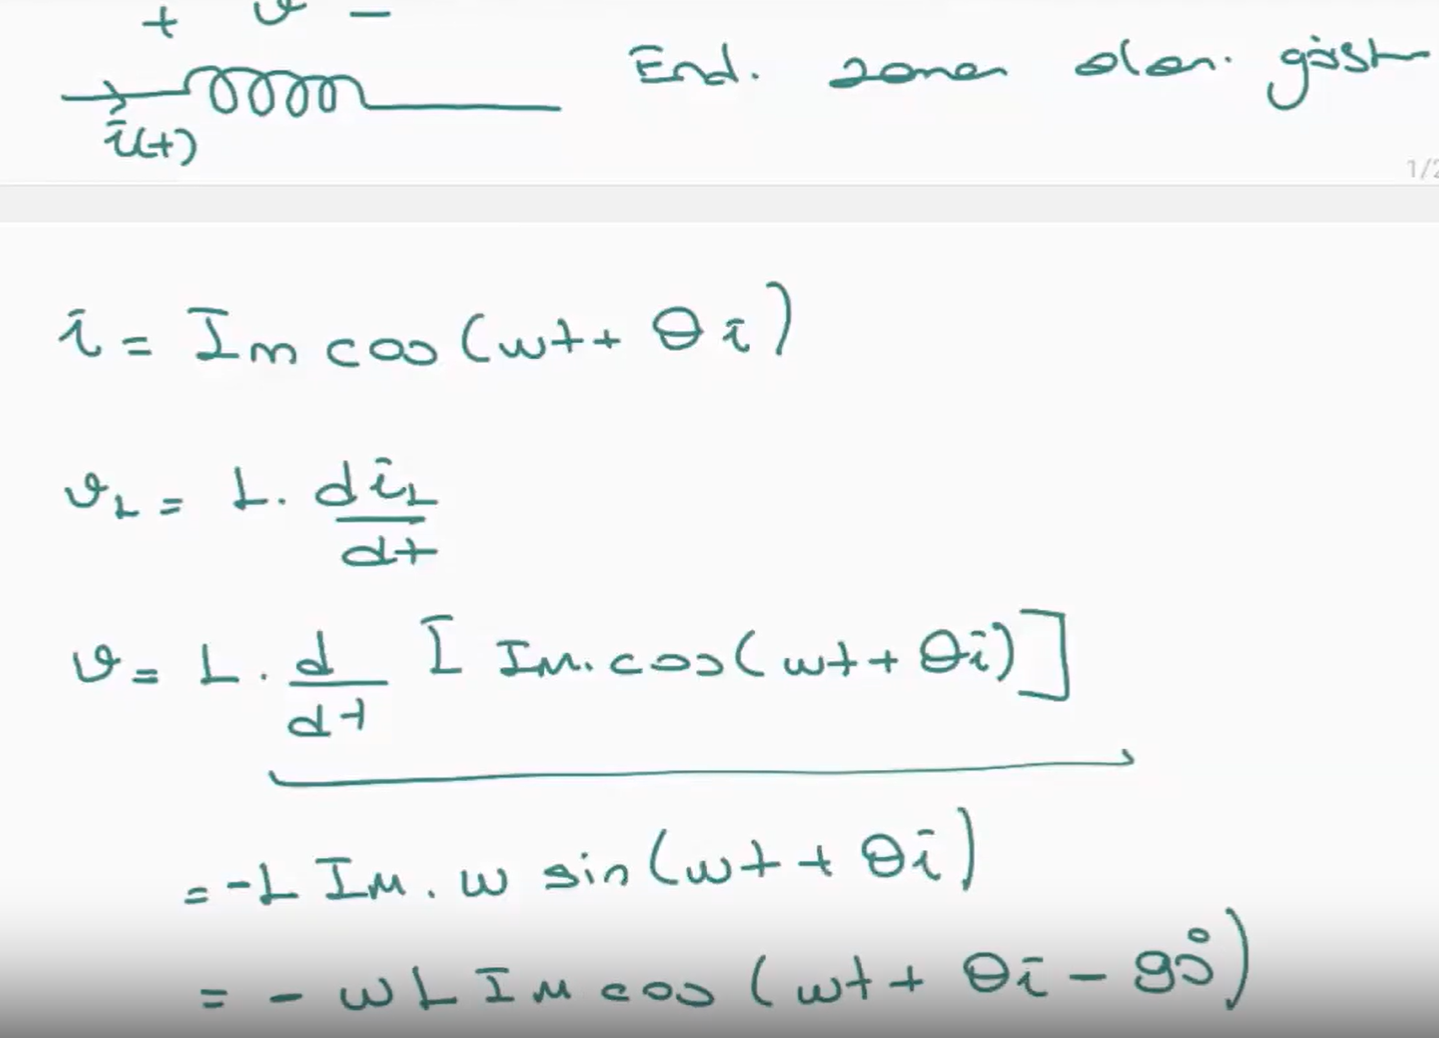 + v -
End. zaman olan. göst
i(t)
1/2
i = Im cos(wt + θi)
vL = L. diL/dt
v = L. d/dt [Im. cos(wt + θi)]
= -L Im. w sin(wt + θi)
= - wL Im cos(wt + θi - 90°)